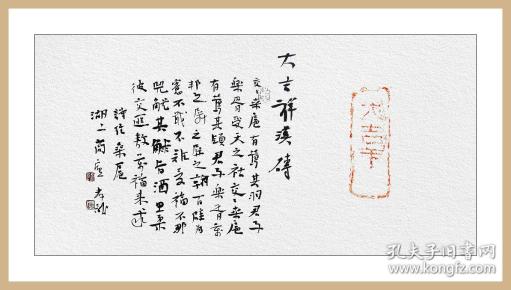 大吉祥漢磚
交々桑扈有鶯其羽君子
樂胥受天之祜交々桑扈
有鶯其領君子樂胥萬
邦之屏之屏之翰百辟為
憲不戢不難受福不那
兕觥其觩旨酒思柔
彼交匪敖萬福來求
詩經桑扈
湖上
孔夫子旧书网
kongfz.com